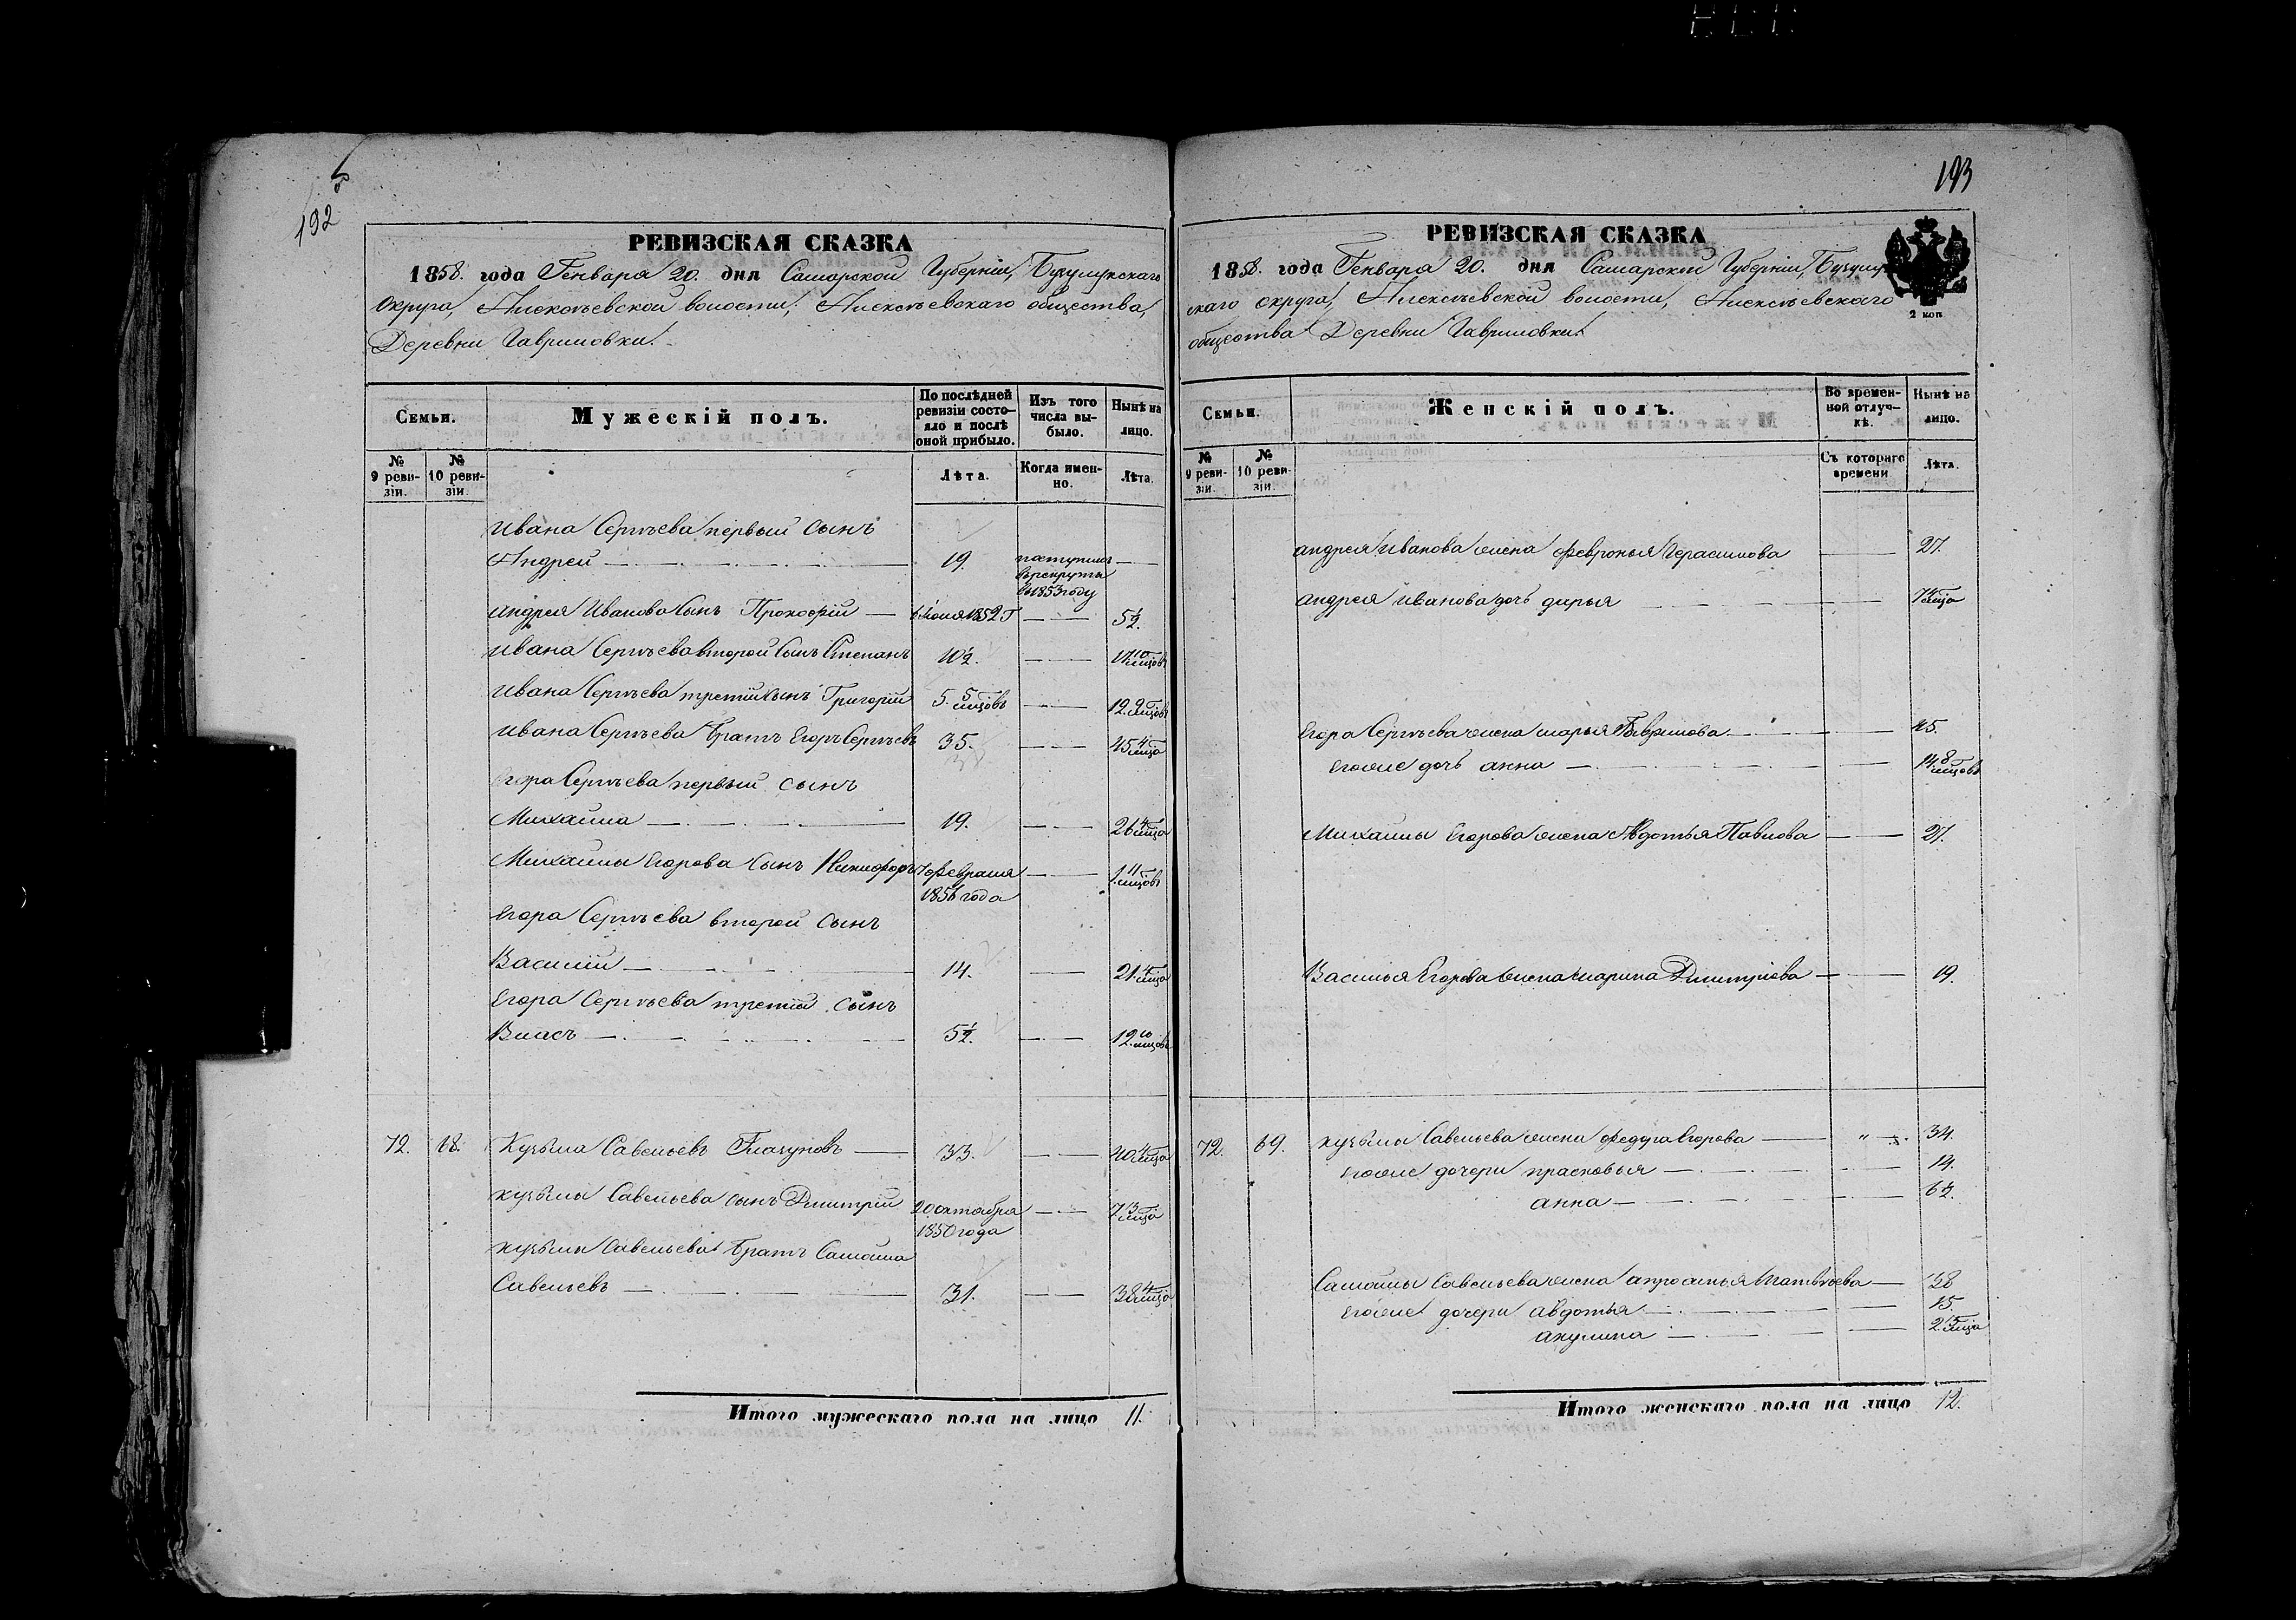 192
РЕВИЗСКАЯ СКАЗКА
1858. года Генваря 20. дня Самарской Губерніи, Бузулукскаго
Округа, Алексѣевской волости, Алексѣевскаго общества,
Деревни Гавриловки.
Семьи.
Мужескій полъ.
По послѣдней ревизіи состояло и послѣ оной прибыло.
Изъ того числа выбыло.
Нынѣ на лицо.
№ 9 ревизіи.
№ 10 ревизіи.
Лѣта.
Когда именно.
Лѣта.
Ивана Сергѣева первый сынъ
Андрей 19. поступилъ
в рекруты
в 1853 году
Андрея Иванова Сынъ Прокофій 6 Июня 1852 Г 5½.
Ивана Сергѣева второй Сынъ Степанъ 10½. 17 10 мцовъ
Ивана Сергѣева третій сынъ Григорій 5. 5 мцовъ 12. 9 мцовъ
Ивана Сергѣева братъ Егоръ Сергѣевъ 35. 45 4 мца
Егора Сергѣева первый сынъ
Михайла 19. 26 4 мца
Михайлы Егорова Сынъ Никифоръ 7 февраля 1. 11 мцовъ
1856 года
Егора Сергѣева второй сынъ
Василій 14. 21. 4 мца
Егора Сергѣева третій сынъ
Власъ 5½. 12. 10 мцовъ
72. 68. Кузьма Савельевъ Глазуновъ 33. 40 4 мца
Кузьмы Савельева сынъ Дмитрій 20 октября 7 3 мца
1850 года
Кузьмы Савельева братъ Самойла
Савельевъ 31. 38 4 мца
Итого мужескаго пола на лицо 11.
193
РЕВИЗСКАЯ СКАЗКА
1858. года Генваря 20. дня Самарской Губерніи, Бузулук
скаго округа, Алексѣевской волости, Алексѣевскаго
общества Деревни Гавриловки.
2 коп
Семьи.
Женскій полъ.
Во временной отлучкѣ.
Нынѣ на лицо.
№ 9 ревизіи.
№ 10 ревизіи.
Съ котораго времени
Лѣта.
Андрея Иванова жена февронья Герасимова 27.
Андрея Иванова дочь дарья 7 4 мца
Егора Сергѣева жена марья Гаврилова 45.
Его же дочь анна 14. 8 мцовъ
Михайлы Егорова жена Авдотья Павлова 27.
Василья Егорова жена марина Дмитріева 19.
72. 69. Кузьмы Савельева жена федура Егорова 34.
Его же дочери прасковья 14.
анна 6½.
Самойлы Савельева жена апросинья матвѣева 38
Его же дочери авдотья 15.
акулина 2. мца
Итого женскаго пола на лицо 12.